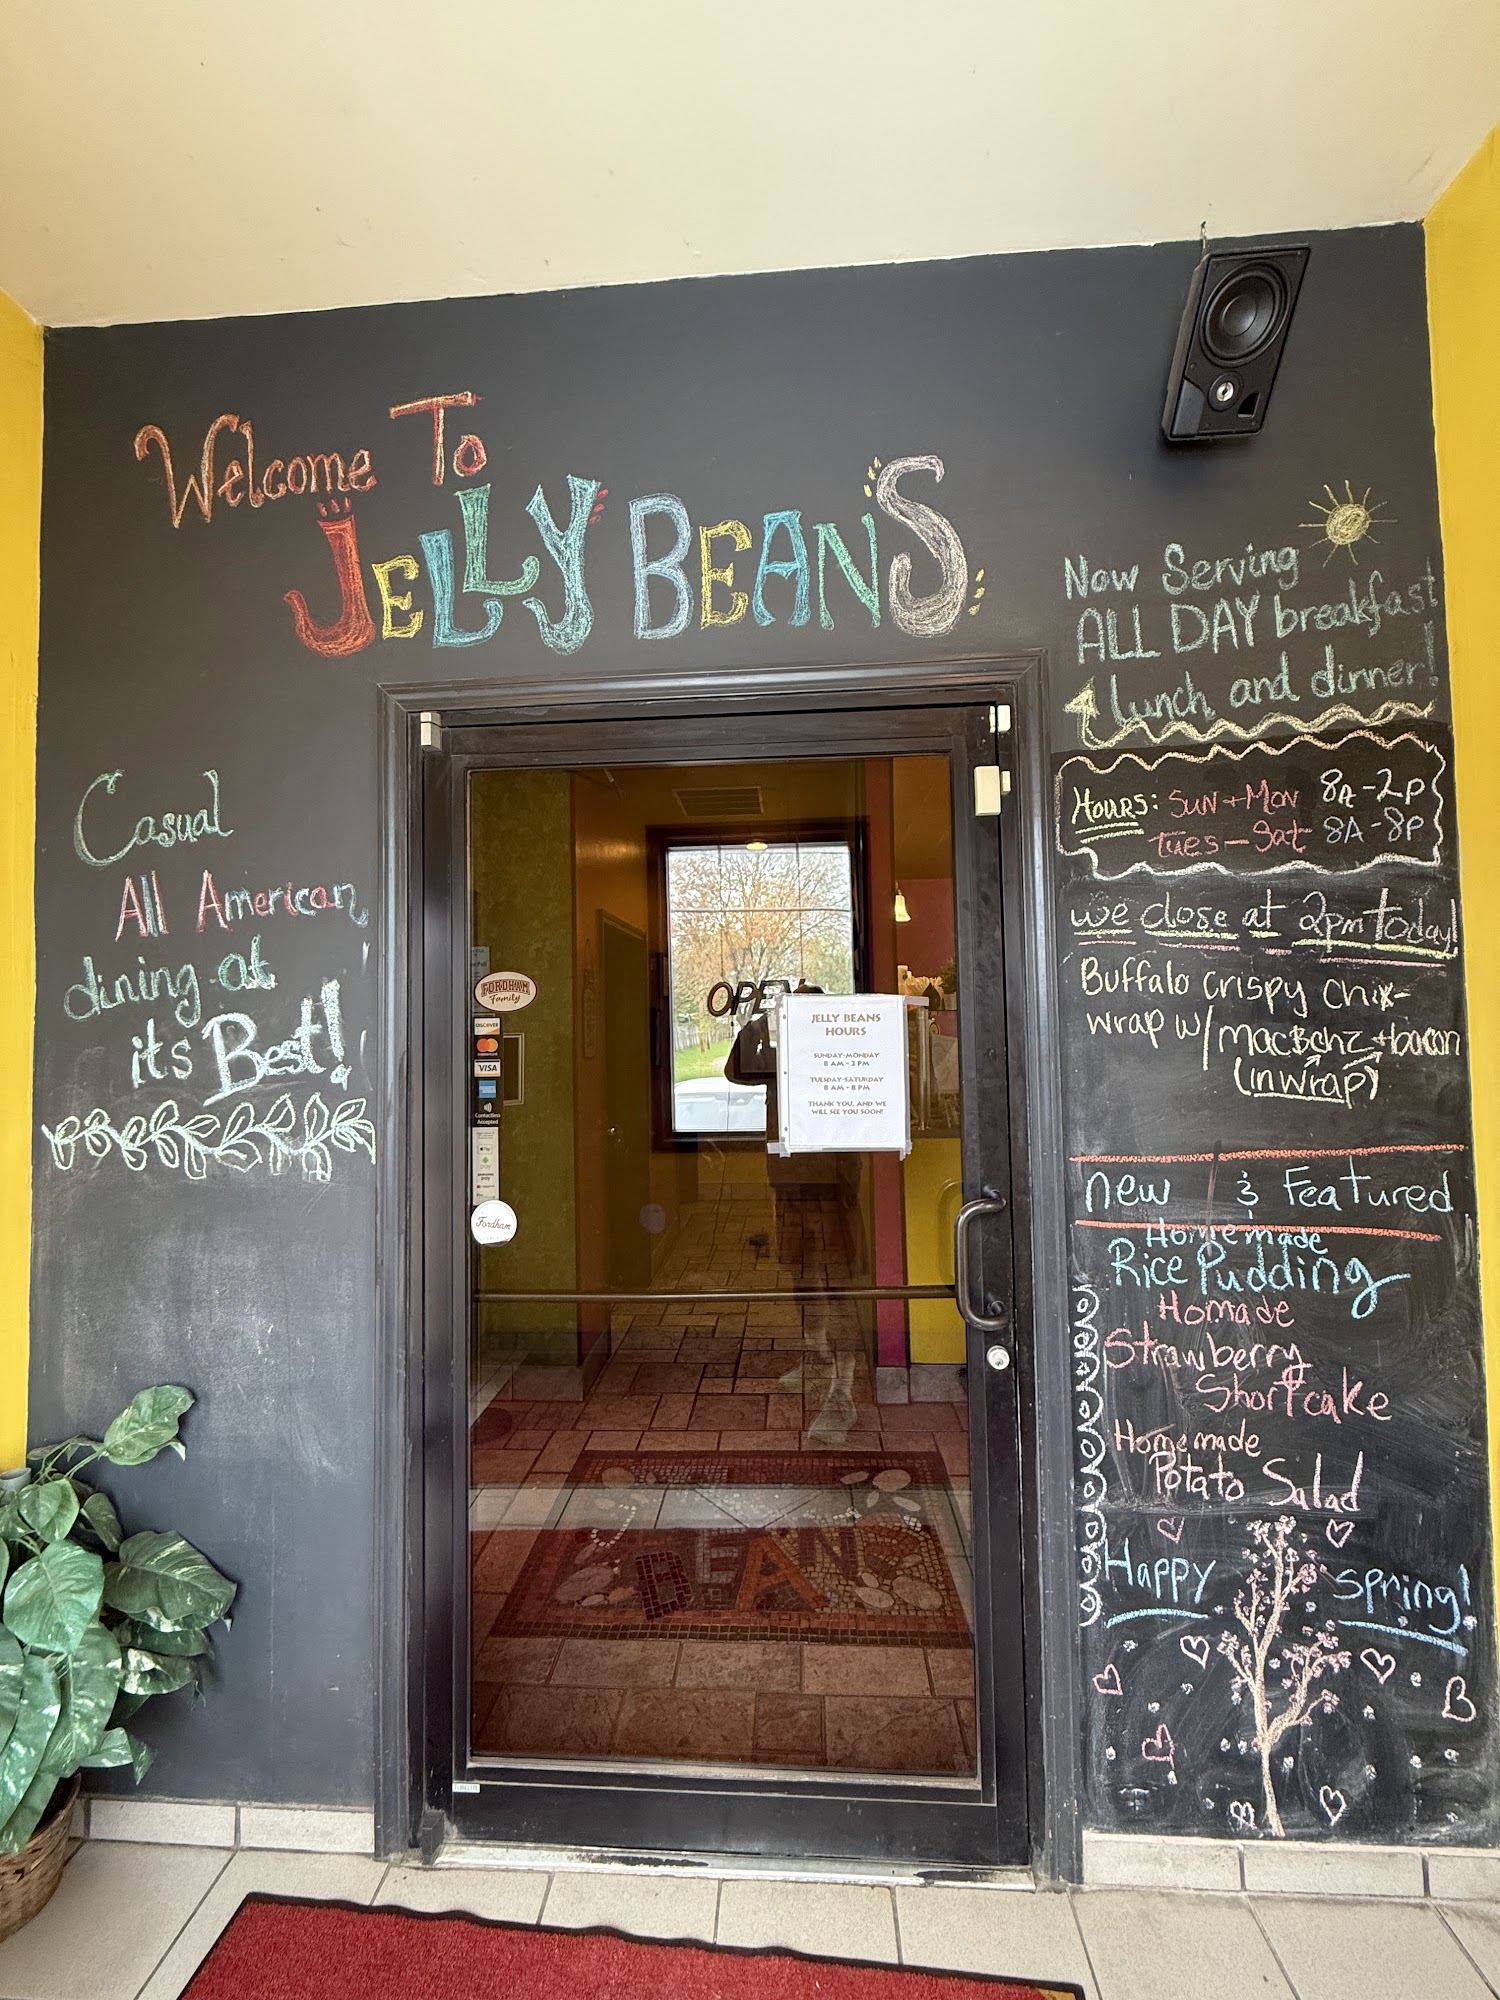 Welcome To
JELLY BEANS
Now Serving
ALL DAY breakfast
lunch and dinner!
HOURS: SUN + MON 8A-2P
Tues - Sat 8A-8P
we close at 2pm today!
Buffalo crispy chix
wrap w/ Mac Bchz + bacon
(in wrap)
new & Featured
Homemade
Rice Pudding
Homade
Strawberry
Shortcake
Homemade
Potato Salad
Happy Spring!
Casual
All American
dining at
it's Best!
OPEN
JELLY BEANS
HOURS
SUNDAY-MONDAY
8 AM - 2 PM
TUESDAY-SATURDAY
8 AM - 8 PM
THANK YOU, AND WE
WILL SEE YOU SOON!
FORDHAM
Family
DISCOVER
mastercard
VISA
Contactless
Accepted
Fordham
BEAN